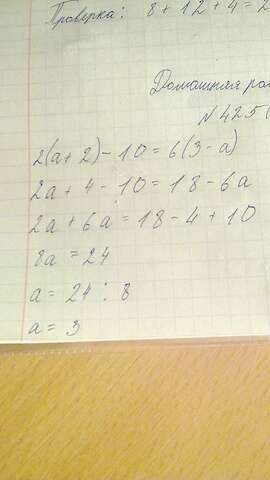 Проверка: 8 + 12 + 4 = 2
Домашняя
№ 425(
2(a + 2) - 10 = 6(3 - a)
2a + 4 - 10 = 18 - 6a
2a + 6a = 18 - 4 + 10
8a = 24
a = 24 : 8
a = 3